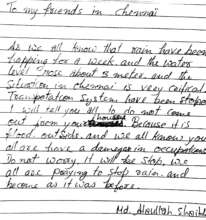 To my friends in chennai
As we all know that rain have been
happping for a week. and the water
level rose about 5 meter. and the
Situation in chennai is very critical
Transpotation System have been stoped
I will tell you all to do not come
out form your houses Because it is
flood outside. and we all know you
all are have a damage in occupations
Do not worry. it will the stop. we
all are praying to stop rain. and
become as it was before.
Md. Abdullah Shaikh